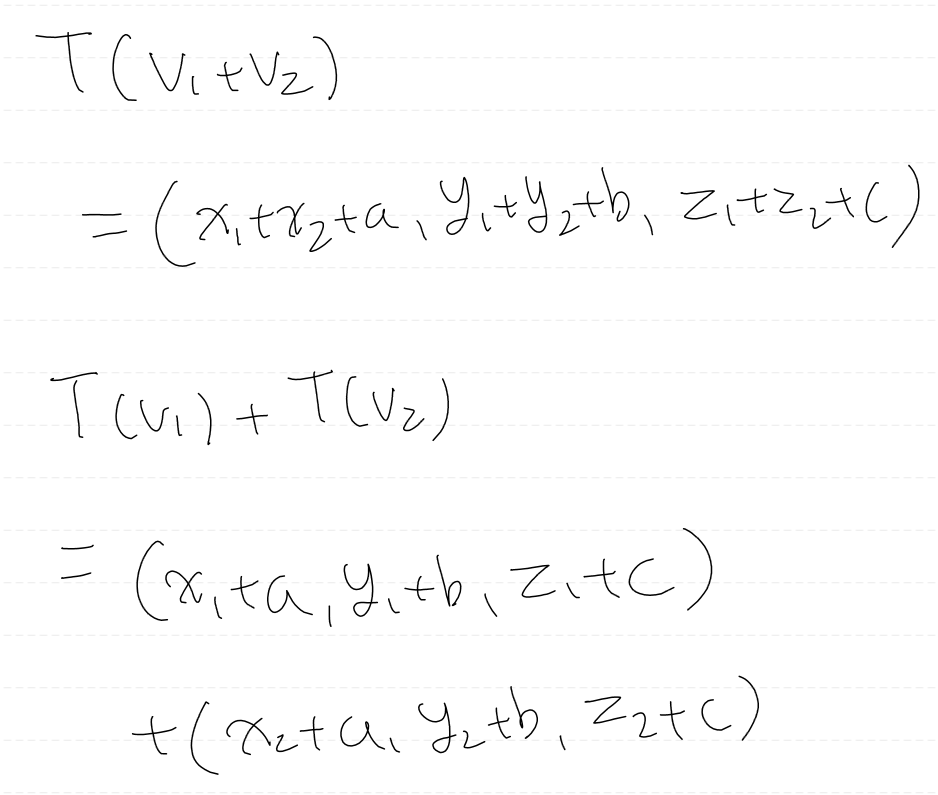 T(v₁+v₂)
=(x₁+x₂+a, y₁+y₂+b, z₁+z₂+c)
T(v₁)+T(v₂)
=(x₁+a, y₁+b, z₁+c)
+(x₂+a, y₂+b, z₂+c)